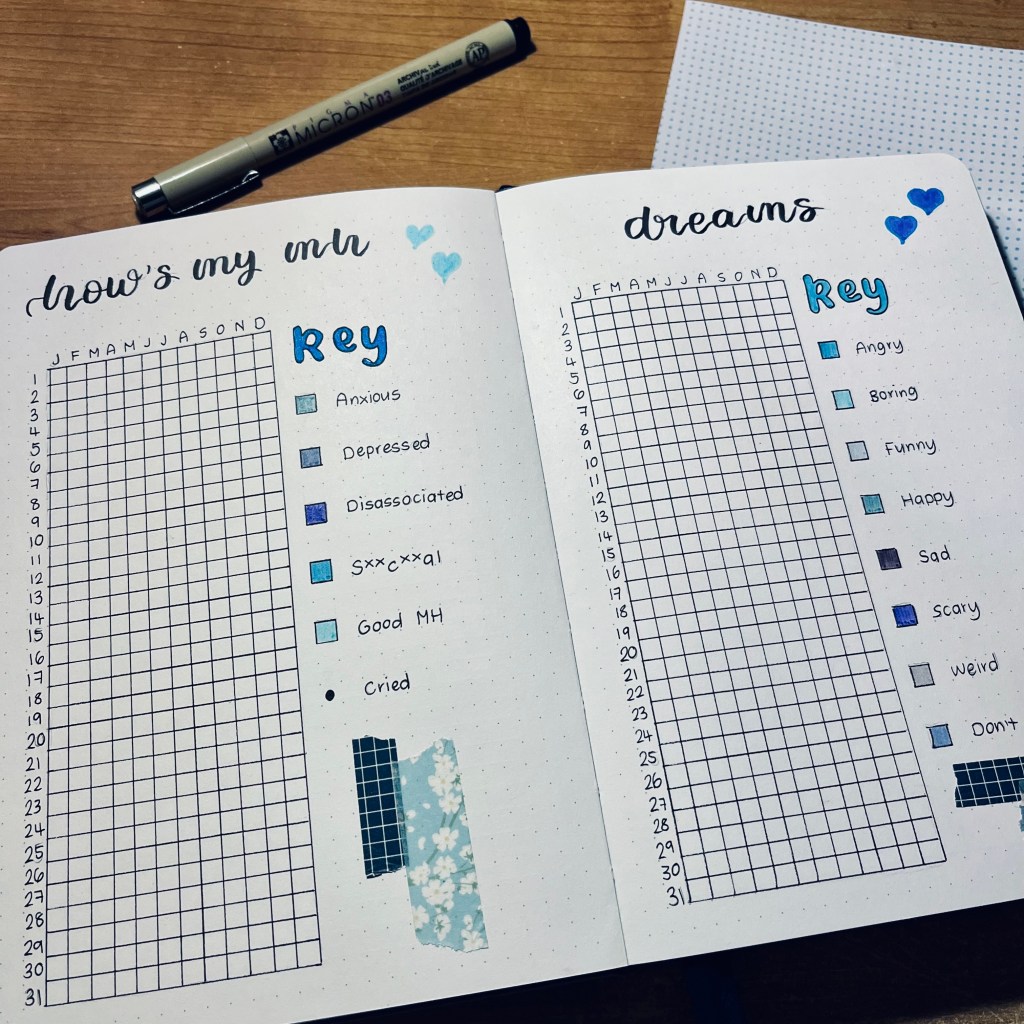 SAKURA
MICRON 03
ARCHIVAL INK
QUALITÉ D'ARCHIVAGE
AP
how's my mh
J F M A M J J A S O N D
1
2
3
4
5
6
7
8
9
10
11
12
13
14
15
16
17
18
19
20
21
22
23
24
25
26
27
28
29
30
31
Key
Anxious
Depressed
Disassociated
Sxxcxxal
Good MH
Cried
dreams
J F M A M J J A S O N D
1
2
3
4
5
6
7
8
9
10
11
12
13
14
15
16
17
18
19
20
21
22
23
24
25
26
27
28
29
30
31
Key
Angry
Boring
Funny
Happy
Sad
Scary
Weird
Don't